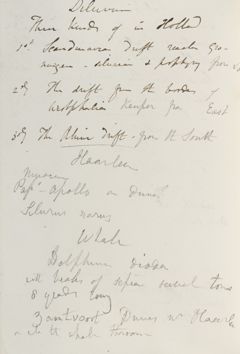 Diluvium
Three kinds of in Holld
1st Scandinavian Drift reaches Gro-
ningen - silurian & porphyry from
2d the drift from the borders of
Westphalia Keuper from East
3d The Rhine Drift - from the South
Haarlem
Pap. Apollo on Dunes
Silurus
Whale
Dolphin
with beaks of sepia several tons
8 yards long
Zantvoort Dunes nr Haarlem